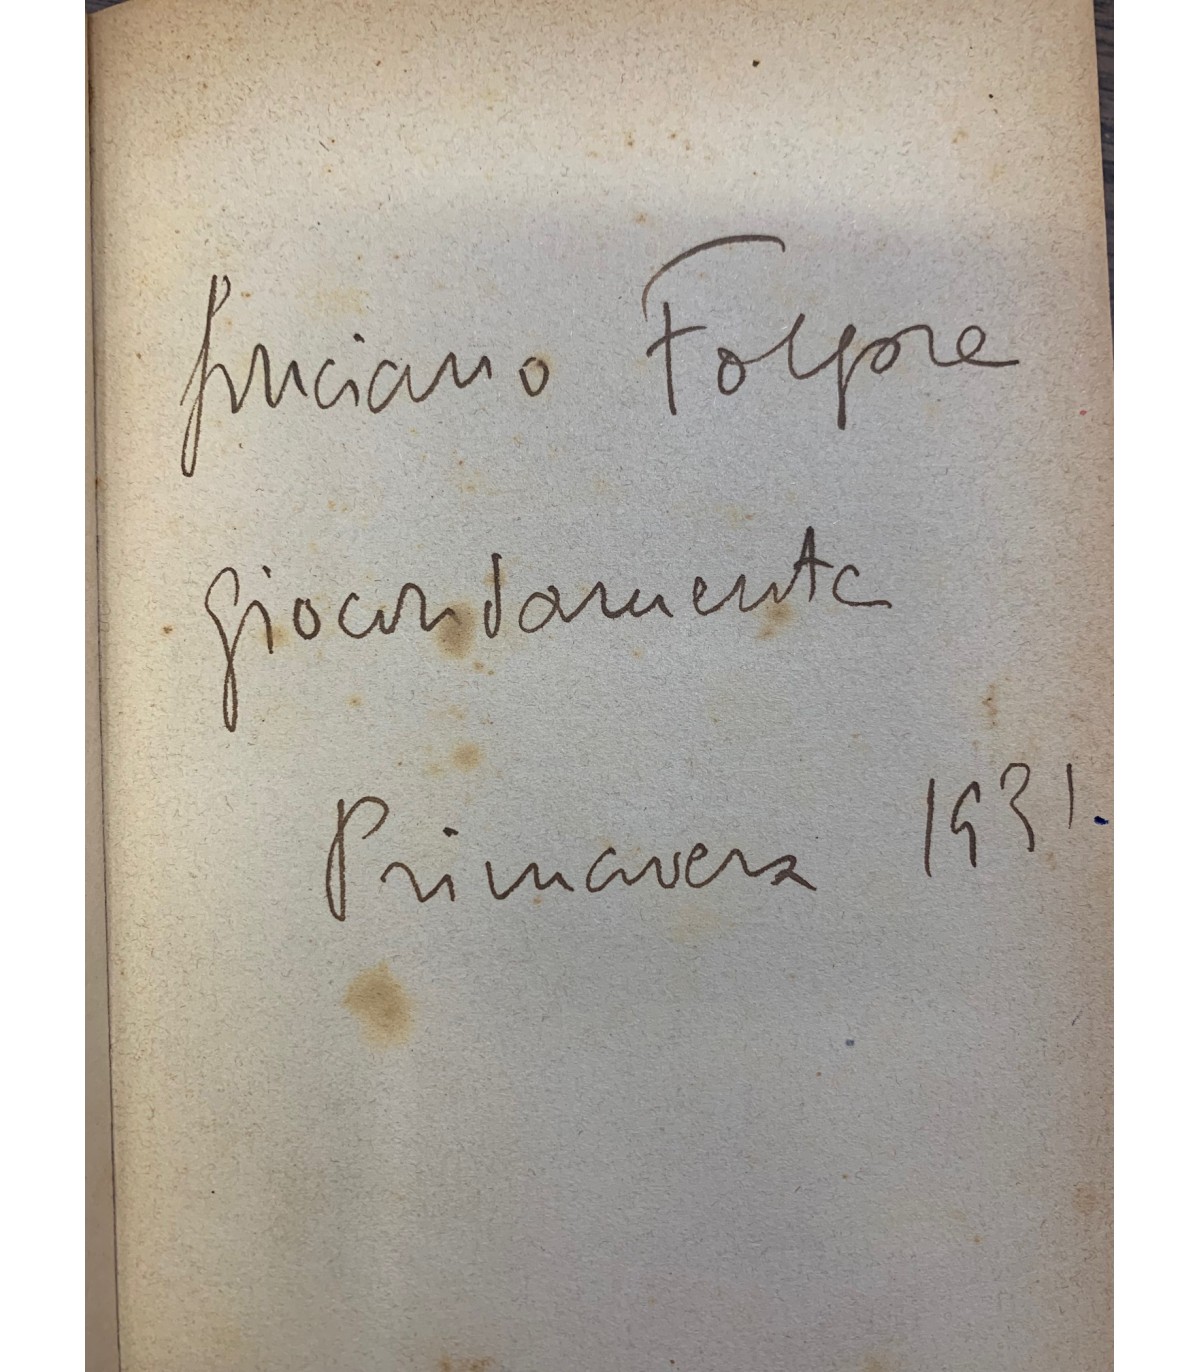 Luciano Folgore
giocondamente
Primavera 1931.